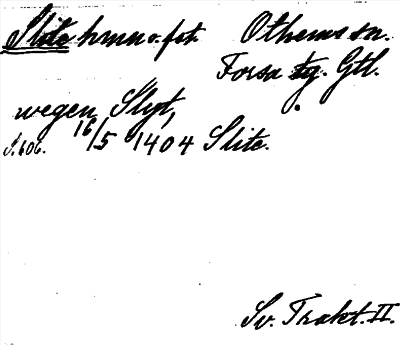 Slite hmn o. fsk. Othems sn.
Forsa tg. Gtl.
wegen Slyt,
S. 606. 16/5 1404 Slite.
Sv. Trakt. II.